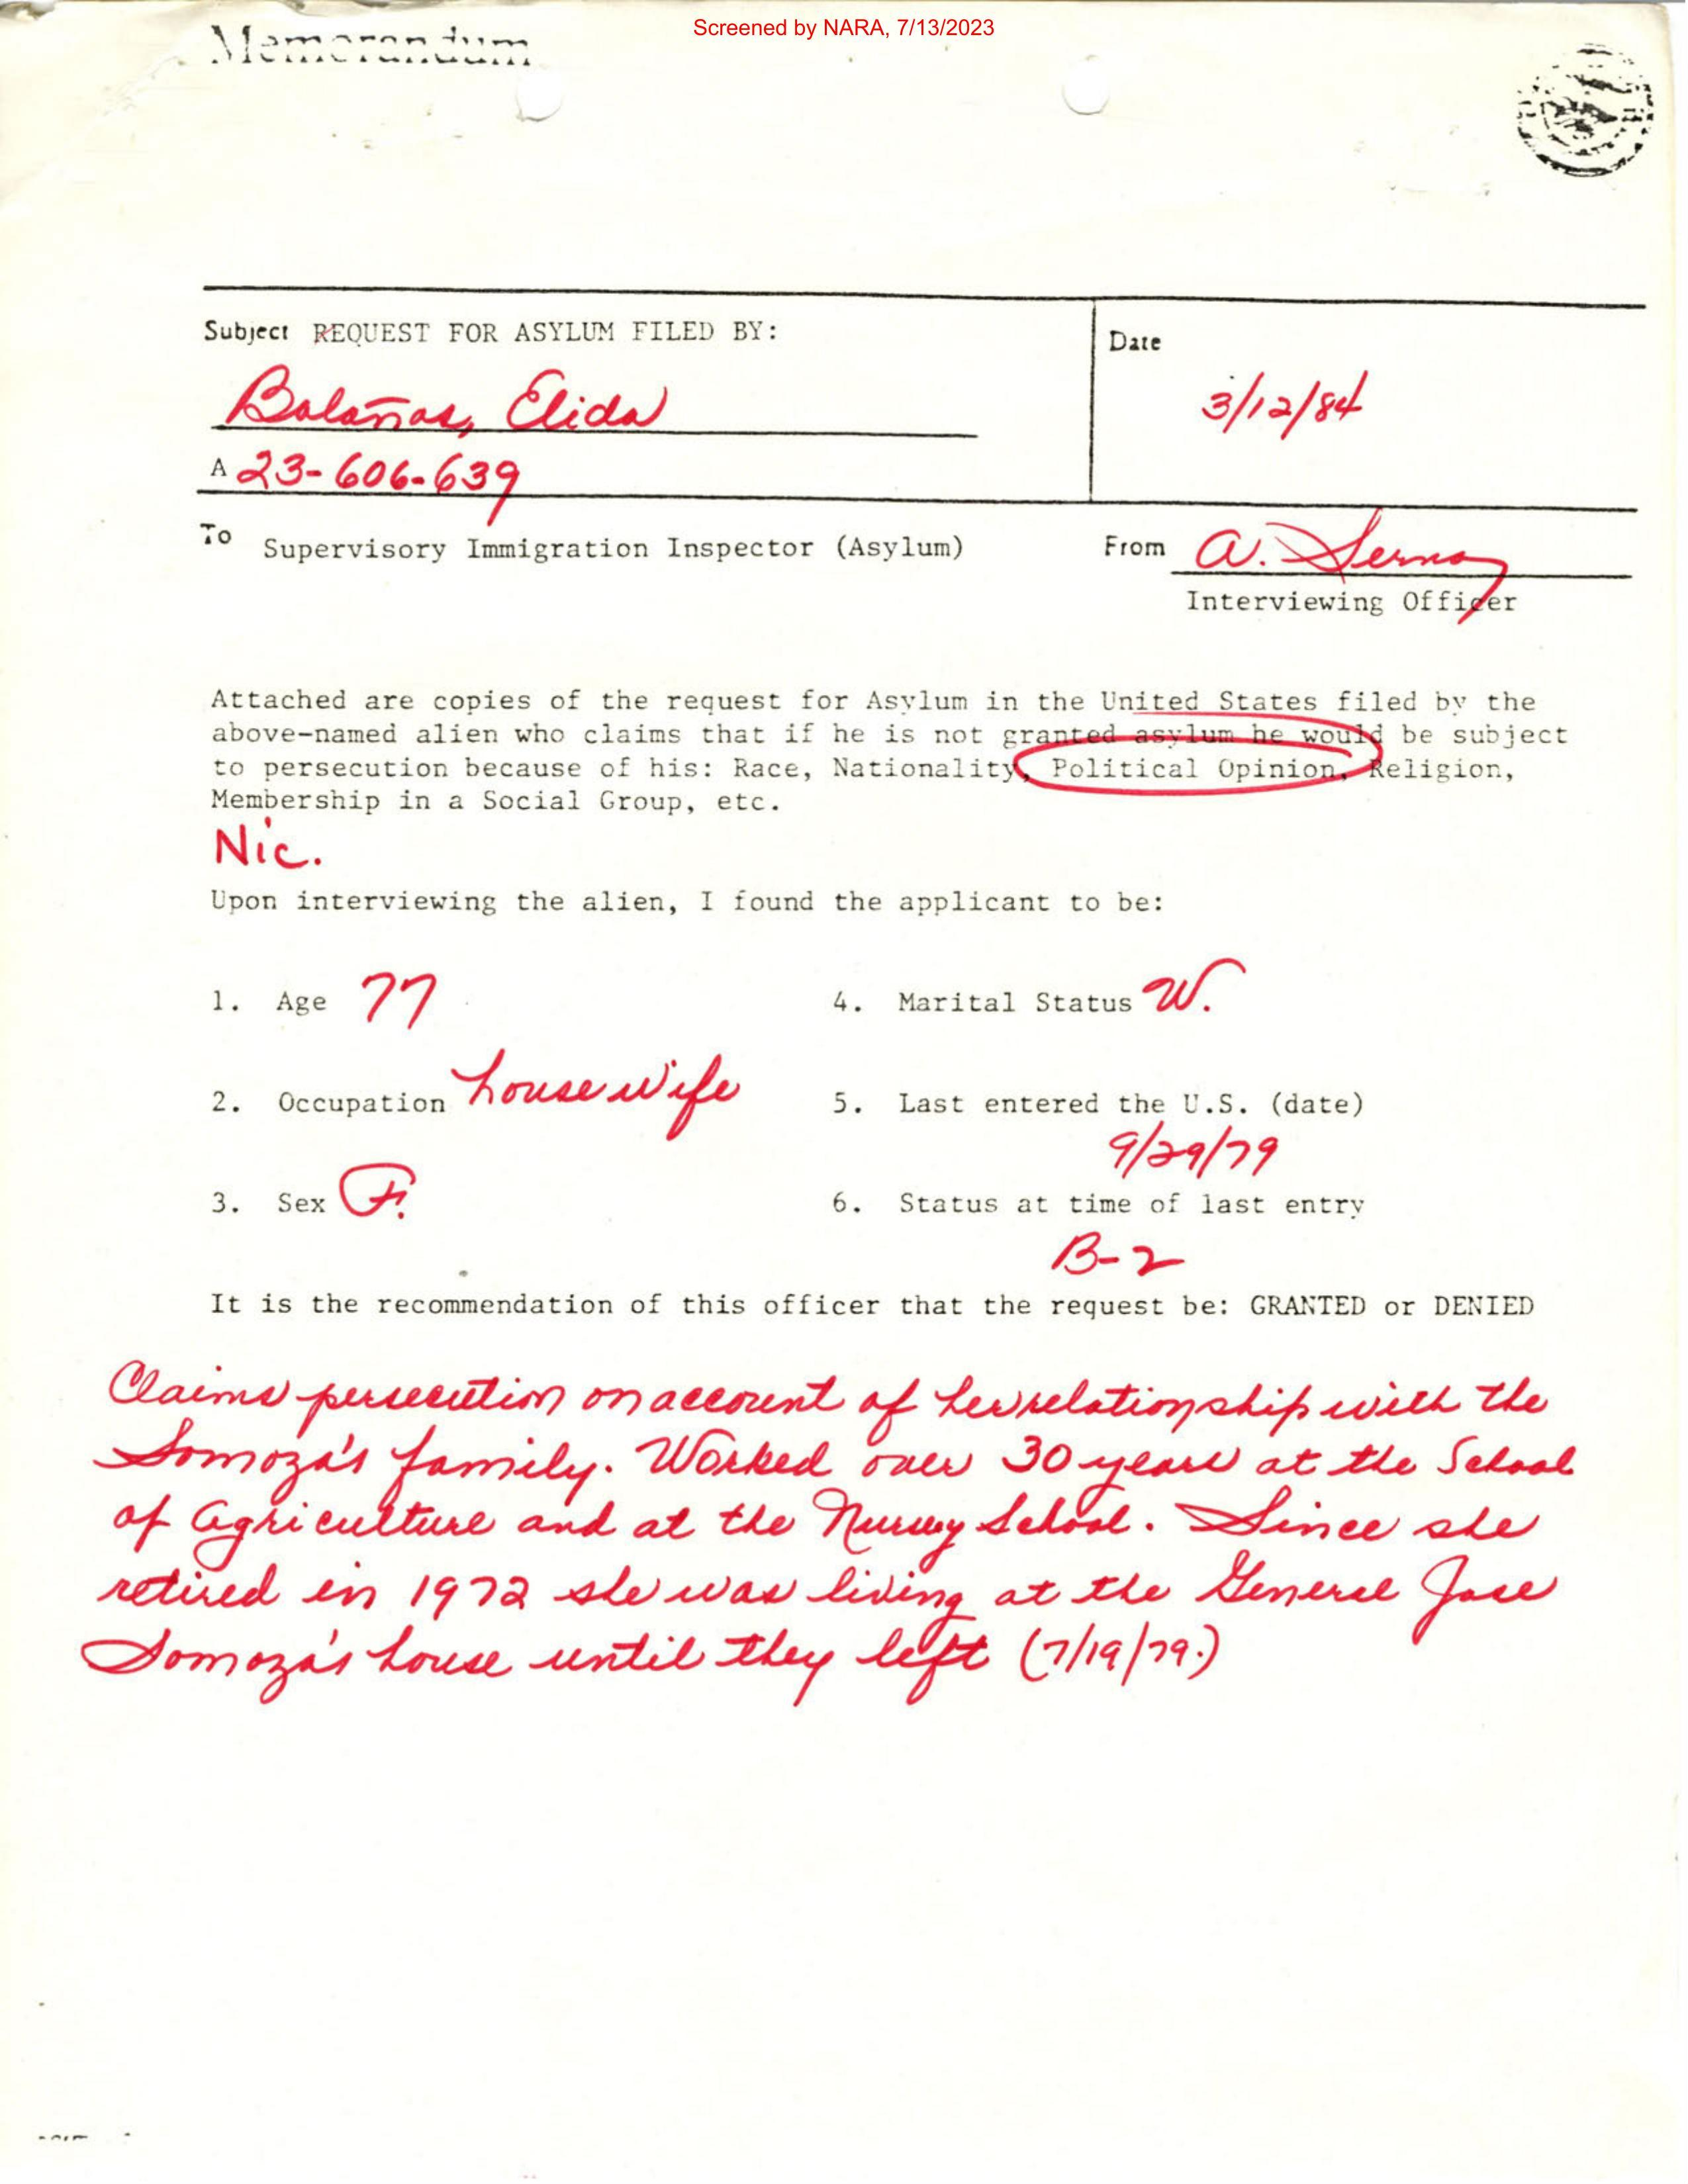 Screened by NARA, 7/13/2023
Memorandum
Subject REQUEST FOR ASYLUM FILED BY:
Date
Bolaños, Elida
3/12/84
A 23-606-639
To Supervisory Immigration Inspector (Asylum)
From A. Serna
Interviewing Officer
Attached are copies of the request for Asylum in the United States filed by the
above-named alien who claims that if he is not granted asylum he would be subject
to persecution because of his: Race, Nationality, Political Opinion, Religion,
Membership in a Social Group, etc.
Nic.
Upon interviewing the alien, I found the applicant to be:
1. Age 77
4. Marital Status W.
2. Occupation housewife
5. Last entered the U.S. (date)
9/29/79
3. Sex F.
6. Status at time of last entry
B-2
It is the recommendation of this officer that the request be: GRANTED or DENIED
Claims persecution on account of her relationship with the
Somoza's family. Worked over 30 years at the School
of Agriculture and at the School. Since she
retired in 1972 she was living at the General Jose
Somoza's house until they left (7/19/79.)